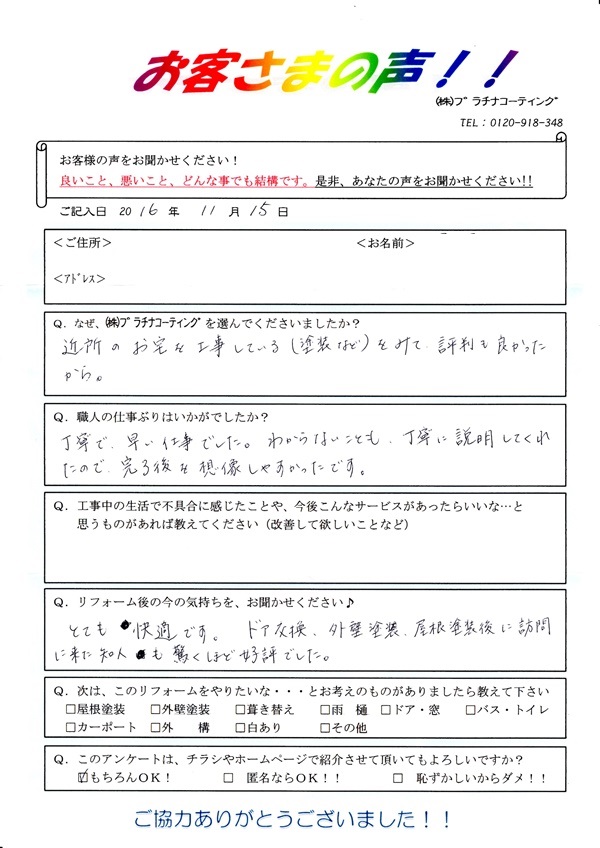 お客さまの声！！
㈱プラチナコーティング
TEL：0120-918-348
お客様の声をお聞かせください！
良いこと、悪いこと、どんな事でも結構です。是非、あなたの声をお聞かせください!!
ご記入日 2016年 11月15日
＜ご住所＞ ＜お名前＞
＜アドレス＞
Q．なぜ、㈱プラチナコーティングを選んでくださいましたか？
近所のお宅を工事している(塗装など)をみて、評判も良かった
から。
Q．職人の仕事ぶりはいかがでしたか？
丁寧で、早い仕事でした。わからないことも、丁寧に説明してくれ
たので、完了後を想像しやすかったです。
Q．工事中の生活で不具合に感じたことや、今後こんなサービスがあったらいいな…と
思うものがあれば教えてください（改善して欲しいことなど）
Q．リフォーム後の今の気持ちを、お聞かせください♪
とても 快適です。 ドア交換、外壁塗装、屋根塗装後に訪問
に来た知人 も驚くほど好評でした。
Q．次は、このリフォームをやりたいな・・・とお考えのものがありましたら教えて下さい
□屋根塗装 □外壁塗装 □葺き替え □雨 樋 □ドア・窓 □バス・トイレ
□カーポート □外 構 □白あり □その他
Q．このアンケートは、チラシやホームページで紹介させて頂いてもよろしいですか？
☑もちろんOK！ □ 匿名ならOK！！ □ 恥ずかしいからダメ！！
ご協力ありがとうございました！！